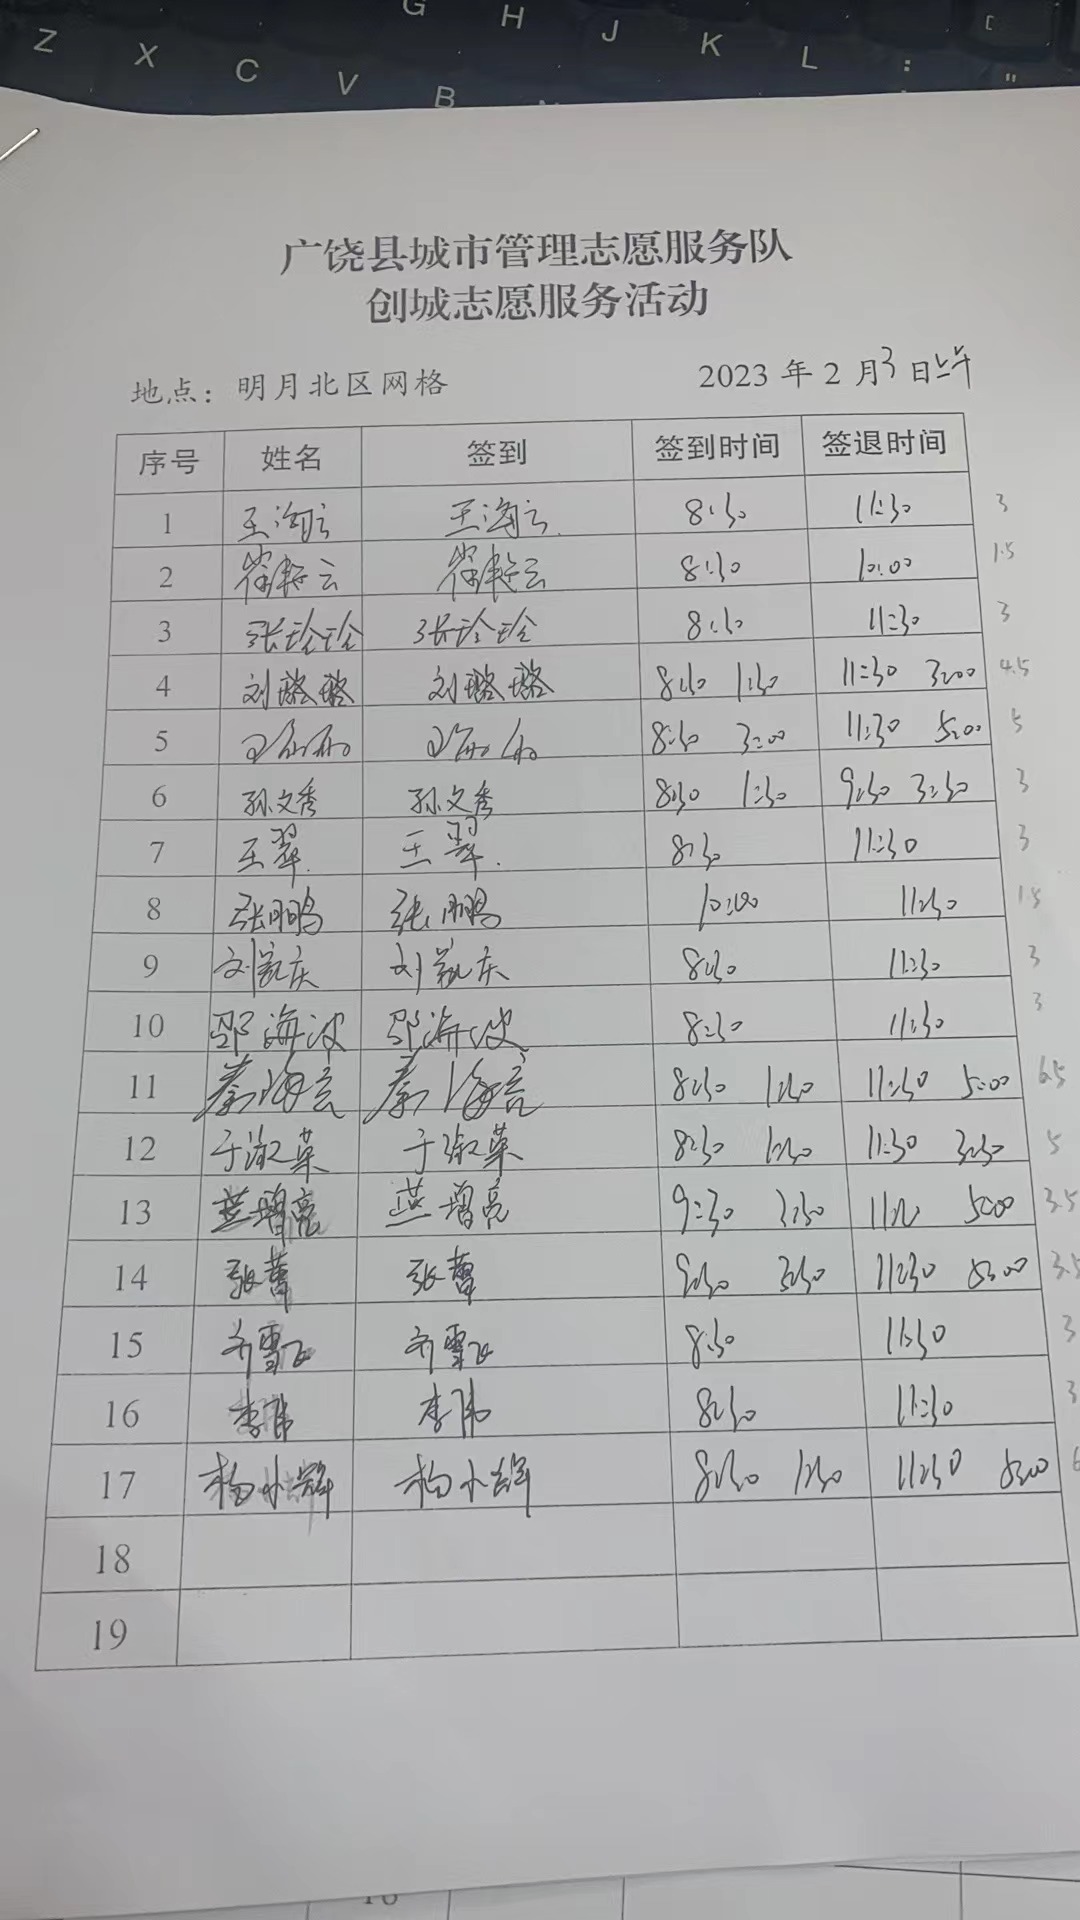 Z X C V B G H J K L : " [
广饶县城市管理志愿服务队
创城志愿服务活动
地点：明月北区网格 2023 年 2 月 3 日上午
序号 姓名 签到 签到时间 签退时间
1 王海云 王海云 8:30 11:30 3
2 徐艳云 徐艳云 8:30 10:00 1.5
3 张玲玲 张玲玲 8:30 11:30 3
4 刘璐璐 刘璐璐 8:30 1:30 11:30 3:00 4.5
5 8:30 3:00 11:30 5:00 5
6 孙文秀 孙文秀 8:30 1:30 9:30 3:30 3
7 王翠 王翠 8:30 11:30 3
8 张鹏 张鹏 10:00 11:30 1.5
9 刘凯庆 刘凯庆 8:30 11:30 3
10 邵海波 邵海波 8:30 11:30 3
11 秦海亮 秦海亮 8:30 1:30 11:30 5:00 6.5
12 于淑菜 于淑菜 8:30 1:30 11:30 3:30 5
13 燕增亮 燕增亮 9:30 3:30 11:30 5:00 3.5
14 张蕾 张蕾 9:30 3:30 11:30 5:00 3.5
15 齐雪飞 齐雪飞 8:30 11:30 3
16 李伟 李伟 8:30 11:30 3
17 杨小辉 杨小辉 8:30 1:30 11:30 5:00 6
18
19